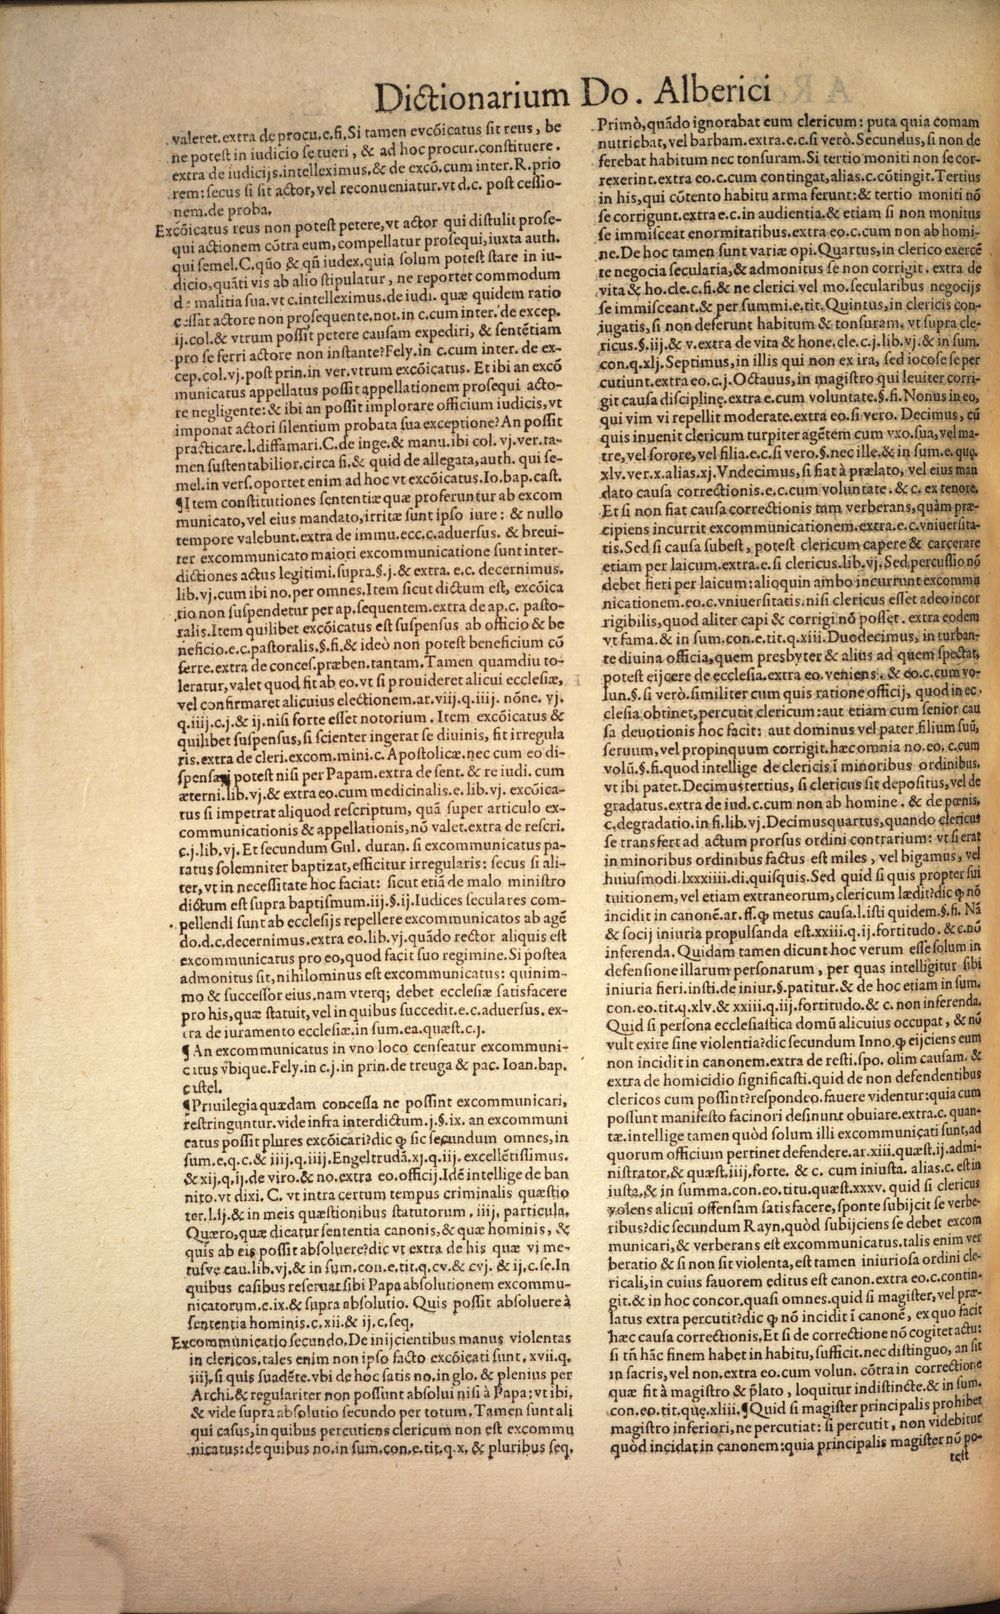 Dictionarium Do. Alberici
valeret.extra de procu.c.fi.Si tamen excõicatus sit reus, be
ne potest in iudicio se tueri, & ad hoc procur.constituere.
extra de iudicijs.intelleximus,& de excõ.cum inter.R.prio
rem:secus si sit actor,vel reconueniatur.vt d.c. post cessio-
nem.de proba.
Excõicatus reus non potest petere,vt actor qui distulit prose-
qui actionem cõtra eum,compellatur prosequi,iuxta auth.
qui semel.C.qũo & qñ iudex.quia solum potest stare in iu-
dicio,quãti vis ab alio stipulatur, ne reportet commodum
de malitia sua.vt c.intelleximus.de iudi. quæ quidem ratio
cessat actore non prosequente.not.in c.cum inter.de excep.
ij.col.& vtrum possit petere causam expediri, & sentẽtiam
pro se ferri actore non instante?Fely.in c.cum inter. de ex-
cep.col.vj.post prin.in ver.vtrum excõicatus. Et ibi an excõ
municatus appellatus possit appellationem prosequi acto-
re negligente:& ibi an possit implorare officium iudicis,vt
imponat actori silentium probata sua exceptione?An possit
practicare.l.diffamari.C.de inge.& manu.ibi col.vj.ver.ta-
men sustentabilior.circa fi.& quid de allegata,auth. qui se-
mel.in vers.oportet enim ad hoc vt excõicatus.Io.bap.cast.
¶Item constitutiones sententiæ quæ proferuntur ab excom
municato,vel eius mandato,irritæ sunt ipso iure: & nullo
tempore valebunt.extra de immu.ecc.c.aduersus. & breui-
ter excommunicato maiori excommunicatione sunt inter-
dictiones actus legitimi.supra.§.j.& extra. e.c. decernimus.
lib.vj.cum ibi no.per omnes.Item sicut dictum est, excõica
tio non suspendetur per ap.sequentem.extra de ap.c. pasto-
ralis.Item quilibet excõicatus est suspensus ab officio & be
neficio.e.c.pastoralis.§.fi.& ideò non potest beneficium cõ
ferre.extra de conces.præben.tantam.Tamen quamdiu to-
leratur,valet quod fit ab eo.vt si prouideret alicui ecclesiæ,
vel confirmaret alicuius electionem.ar.viij.q.iiij. nõne. vj.
q.iiij.c.j.& ij.nisi forte esset notorium. Item excõicatus &
quilibet suspensus,si scienter ingerat se diuinis, fit irregula
ris.extra de cleri.excom.mini.c.Apostolicæ.nec cum eo di-
spensari potest nisi per Papam.extra de sent. & re iudi. cum
æterni.lib.vj.& extra eo.cum medicinalis.e. lib. vj. excõica-
tus si impetrat aliquod rescriptum, quã super articulo ex-
communicationis & appellationis,nõ valet.extra de rescri.
c.j.lib.vj. Et secundum Gul. duran. si excommunicatus pa-
ratus solemniter baptizat,efficitur irregularis: secus si ali-
ter,vt in necessitate hoc faciat: sicut etiã de malo ministro
dictum est supra baptismum.iij.§.ij.Iudices seculares com-
pellendi sunt ab ecclesijs repellere excommunicatos ab agẽ
do.d.c.decernimus.extra eo.lib.vj.quãdo rector aliquis est
excommunicatus pro eo,quod facit suo regimine.Si postea
admonitus sit,nihilominus est excommunicatus: quinim-
mo & successor eius.nam vterq; debet ecclesiæ satisfacere
pro his,quæ statuit,vel in quibus succedit.e.c.aduersus. ex-
tra de iuramento ecclesiæ.in sum.ea.quæst.c.j.
¶ An excommunicatus in vno loco censeatur excommuni-
catus vbique.Fely.in c.j.in prin.de treuga & pac. Ioan.bap.
castel.
¶Priuilegia quædam concessa ne possint excommunicari,
restringuntur.vide infra interdictum.j.§.ix. an excommuni
catus possit plures excõicari?dic ꝙ sic secundum omnes,in
sum.e.q.c.& iiij.q.iiij.Engeltrudã.xj.q.iij. excellẽtissimus.
& xij.q.ij.de viro.& no.extra eo.officij.Idẽ intellige de ban
nito.vt dixi. C. vt intra certum tempus criminalis quæstio
ter.l.ij.& in meis quæstionibus statutorum. iiij. particula.
Quæro,quæ dicatur sententia canonis,& quæ hominis, &
quis ab eis possit absoluere?dic vt extra de his quæ vi me-
tusve cau.lib.vj.& in sum.con.e.tit.q.cv.& cvj. & ij.c.se.In
quibus casibus reseruat sibi Papa absolutionem excommu-
nicatorum.c.ix.& supra absolutio. Quis possit absoluere à
sententia hominis.c.xii.& ij.c.seq.
Excommunicatio secundo.De inijcientibus manus violentas
in clericos,tales enim non ipso facto excõicati sunt.xvii.q.
iiij.si quis suadẽte.vbi de hoc satis no.in glo. & plenius per
Archi.& regulariter non possunt absolui nisi à Papa:vt ibi,
& vide supra absolutio secundo per totum.Tamen sunt ali
qui casus,in quibus percutiens clericum non est excommu
nicatus:de quibus no.in sum.con.e.tit.q.x. & pluribus seq.
Primò,quãdo ignorabat eum clericum: puta quia comam
nutriebat,vel barbam.extra.e.c.si verò.Secundus,si non de
ferebat habitum nec tonsuram.Si tertio moniti non se cor-
rexerint.extra eo.c.cum contingat,alias.c.cõtingit.Tertius
in his,qui cõtento habitu arma ferunt:& tertio moniti nõ
se corrigunt.extra e.c.in audientia.& etiam si non monitus
se immisceat enormitatibus.extra eo.c.cum non ab homi-
ne.De hoc tamen sunt variæ opi.Quartus,in clerico exercẽ
te negocia secularia,& admonitus se non corrigit. extra de
vita & ho.cle.c.fi.& ne clerici vel mo.secularibus negocijs
se immisceant.& per summi.e.tit. Quintus,in clericis con-
iugatis,si non deferunt habitum & tonsuram. vt supra cle-
ricus.§.iij.& v.extra de vita & hone.cle.c.j.lib.vj.& in sum.
con.q.xlj.Septimus,in illis qui non ex ira, sed iocose se per
cutiunt.extra eo.c.j.Octauus,in magistro qui leuiter corri-
git causa disciplinę.extra e.cum voluntate.§.fi.Nonus in eo,
qui vim vi repellit moderate.extra eo.si vero. Decimus, cũ
quis inuenit clericum turpiter agẽtem cum vxo.sua,vel ma-
tre,vel sorore,vel filia.e.c.si vero.§.nec ille.& in sum.e.quę.
xlv.ver.x.alias.xj.Vndecimus,si fiat à prælato, vel eius man
dato causa correctionis.e.c.cum voluntate. & c. ex tenore.
Et si non fiat causa correctionis tam verberans,quàm præ-
cipiens incurrit excommunicationem.extra.e.c.vniuersita-
tis.Sed si causa subest, potest clericum capere & carcerare
etiam per laicum.extra.e.si clericus.lib.vj.Sed percussio nõ
debet fieri per laicum:alioquin ambo incurrunt excommu
nicationem.eo.c.vniuersitatis.nisi clericus esset adeo incor
rigibilis,quod aliter capi & corrigi nõ posset. extra eodem
vt fama.& in sum.con.e.tit.q.xiii.Duodecimus, in turban-
te diuina officia,quem presbyter & alius ad quem spectat,
potest eijcere de ecclesia.extra eo.veniens.& eo.c.cum vo-
lun.§.si verò.similiter cum quis ratione officij, quod in ec-
clesia obtinet,percutit clericum:aut etiam cum senior cau
sa deuotionis hoc facit: aut dominus vel pater filium suũ,
seruum,vel propinquum corrigit.hæc omnia no.eo. c.cum
volũ.§.fi.quod intellige de clericis ĩ minoribus ordinibus.
vt ibi patet.Decimustertius, si clericus sit depositus,vel de
gradatus.extra de iud.c.cum non ab homine. & de pœnis.
c.degradatio.in fi.lib.vj.Decimusquartus,quando clericus
se transfert ad actum prorsus ordini contrarium: vt si erat
in minoribus ordinibus factus est miles, vel bigamus, vel
huiusmodi.lxxxiiii.di.quisquis.Sed quid si quis propter sui
tuitionem,vel etiam extraneorum,clericum lædit?dic ꝙ nõ
incidit in canonẽ.ar.ff.ꝙ metus causa.l.isti quidem.§.fi. Nã
& socij iniuria propulsanda est.xxiij.q.ij.fortitudo. & c.nõ
inferenda. Quidam tamen dicunt hoc verum esse solum in
defensione illarum personarum, per quas intelligitur sibi
iniuria fieri.insti.de iniur.§.patitur.& de hoc etiam in sum.
con.eo.tit.q.xlv.& xxiii.q.iij.fortitudo.& c. non inferenda.
Quid si persona ecclesiastica domũ alicuius occupat, & nõ
vult exire sine violentia?dic secundum Inno.ꝙ eijciens eum
non incidit in canonem.extra de resti.spo. olim causam. &
extra de homicidio significasti.quid de non defendentibus
clericos cum possint?respondeo.fauere videntur:quia cum
possunt manifesto facinori desinunt obuiare.extra.c. quan-
tæ.intellige tamen quòd solum illi excommunicati sunt,ad
quorum officium pertinet defendere.ar.xiii.quæst.ij.admi-
nistrator.& quæst.iiij.forte. & c. cum iniusta. alias.c. est in
iusta.& in summa.con.eo.titu.quæst.xxxv. quid si clericus
volens alicui offensam satisfacere, sponte subijcit se verbe-
ribus?dic secundum Rayn,quòd subijciens se debet excom
municari,& verberans est excommunicatus.talis enim ver
beratio & si non sit violenta,est tamen iniuriosa ordini cle-
ricali,in cuius fauorem editus est canon.extra eo.c.contin-
git.& in hoc concor.quasi omnes.quid si magister, vel præ-
latus extra percutit?dic ꝙ nõ incidit ĩ canonẽ, ex quo facit
hæc causa correctionis.Et si de correctione nõ cogitet actu:
si tñ hãc finem habet in habitu,sufficit.nec distinguo, an sit
in sacris,vel non.extra eo.cum volun. cõtra in correctione
quæ fit à magistro & p̃lato, loquitur indistincte.& in sum.
con.eo.tit.quę.xliii.¶Quid si magister principalis prohibet
magistro inferiori,ne percutiat: si percutit, non videbitur
quòd incidat in canonem:quia principalis magister nõ po-
test